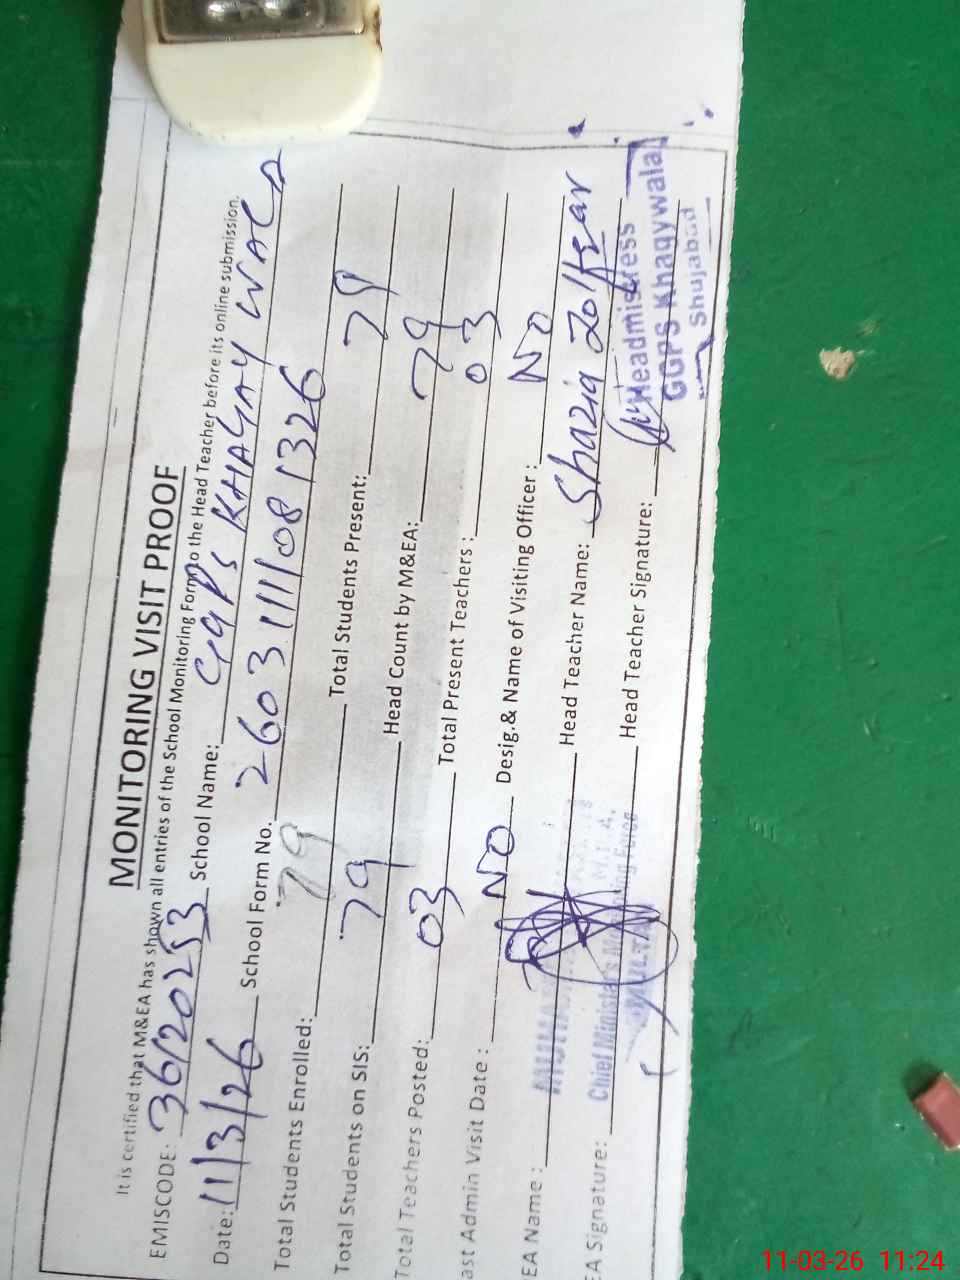 MONITORING VISIT PROOF
It is certified that M&EA has shown all entries of the School Monitoring Form to the Head Teacher before its online submission.
EMISCODE: 36120253 School Name: GGPS KHAGAY WALA
Date: 11/3/26 School Form No. 2603111108 1326
Total Students Enrolled: 79 Total Students Present: 79
Total Students on SIS: 79 Head Count by M&EA: 79
Total Teachers Posted: 03 Total Present Teachers: 03
ast Admin Visit Date: NO Desig.& Name of Visiting Officer: NO
EA Name: Head Teacher Name: Shazia Zolfqar
EA Signature: Head Teacher Signature:
Chief Minister's Monitoring Force
MULTAN
Headmistress
GGPS Khagywala
Shujabad
11-03-26 11:24